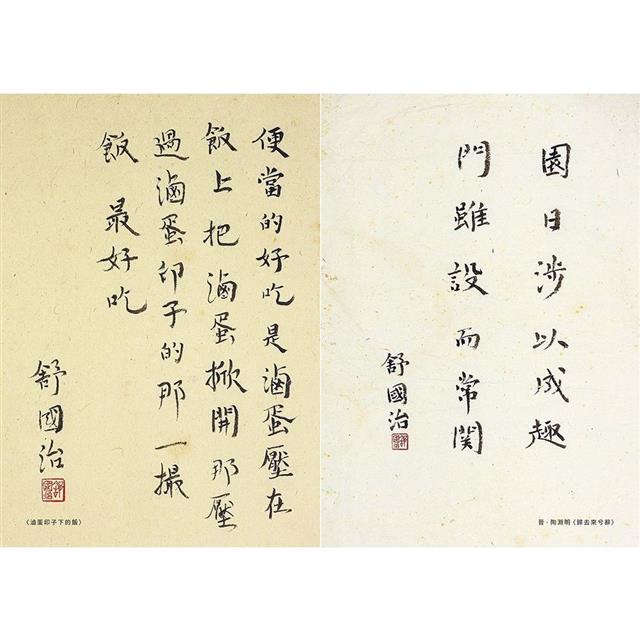 便當的好吃是滷蛋壓在
飯上把滷蛋掀開那壓
過滷蛋印子的那一撮
飯 最好吃
舒國治
〈滷蛋印子下的飯〉
園日涉以成趣
門雖設而常関
舒國治
晉・陶淵明《歸去來兮辭》